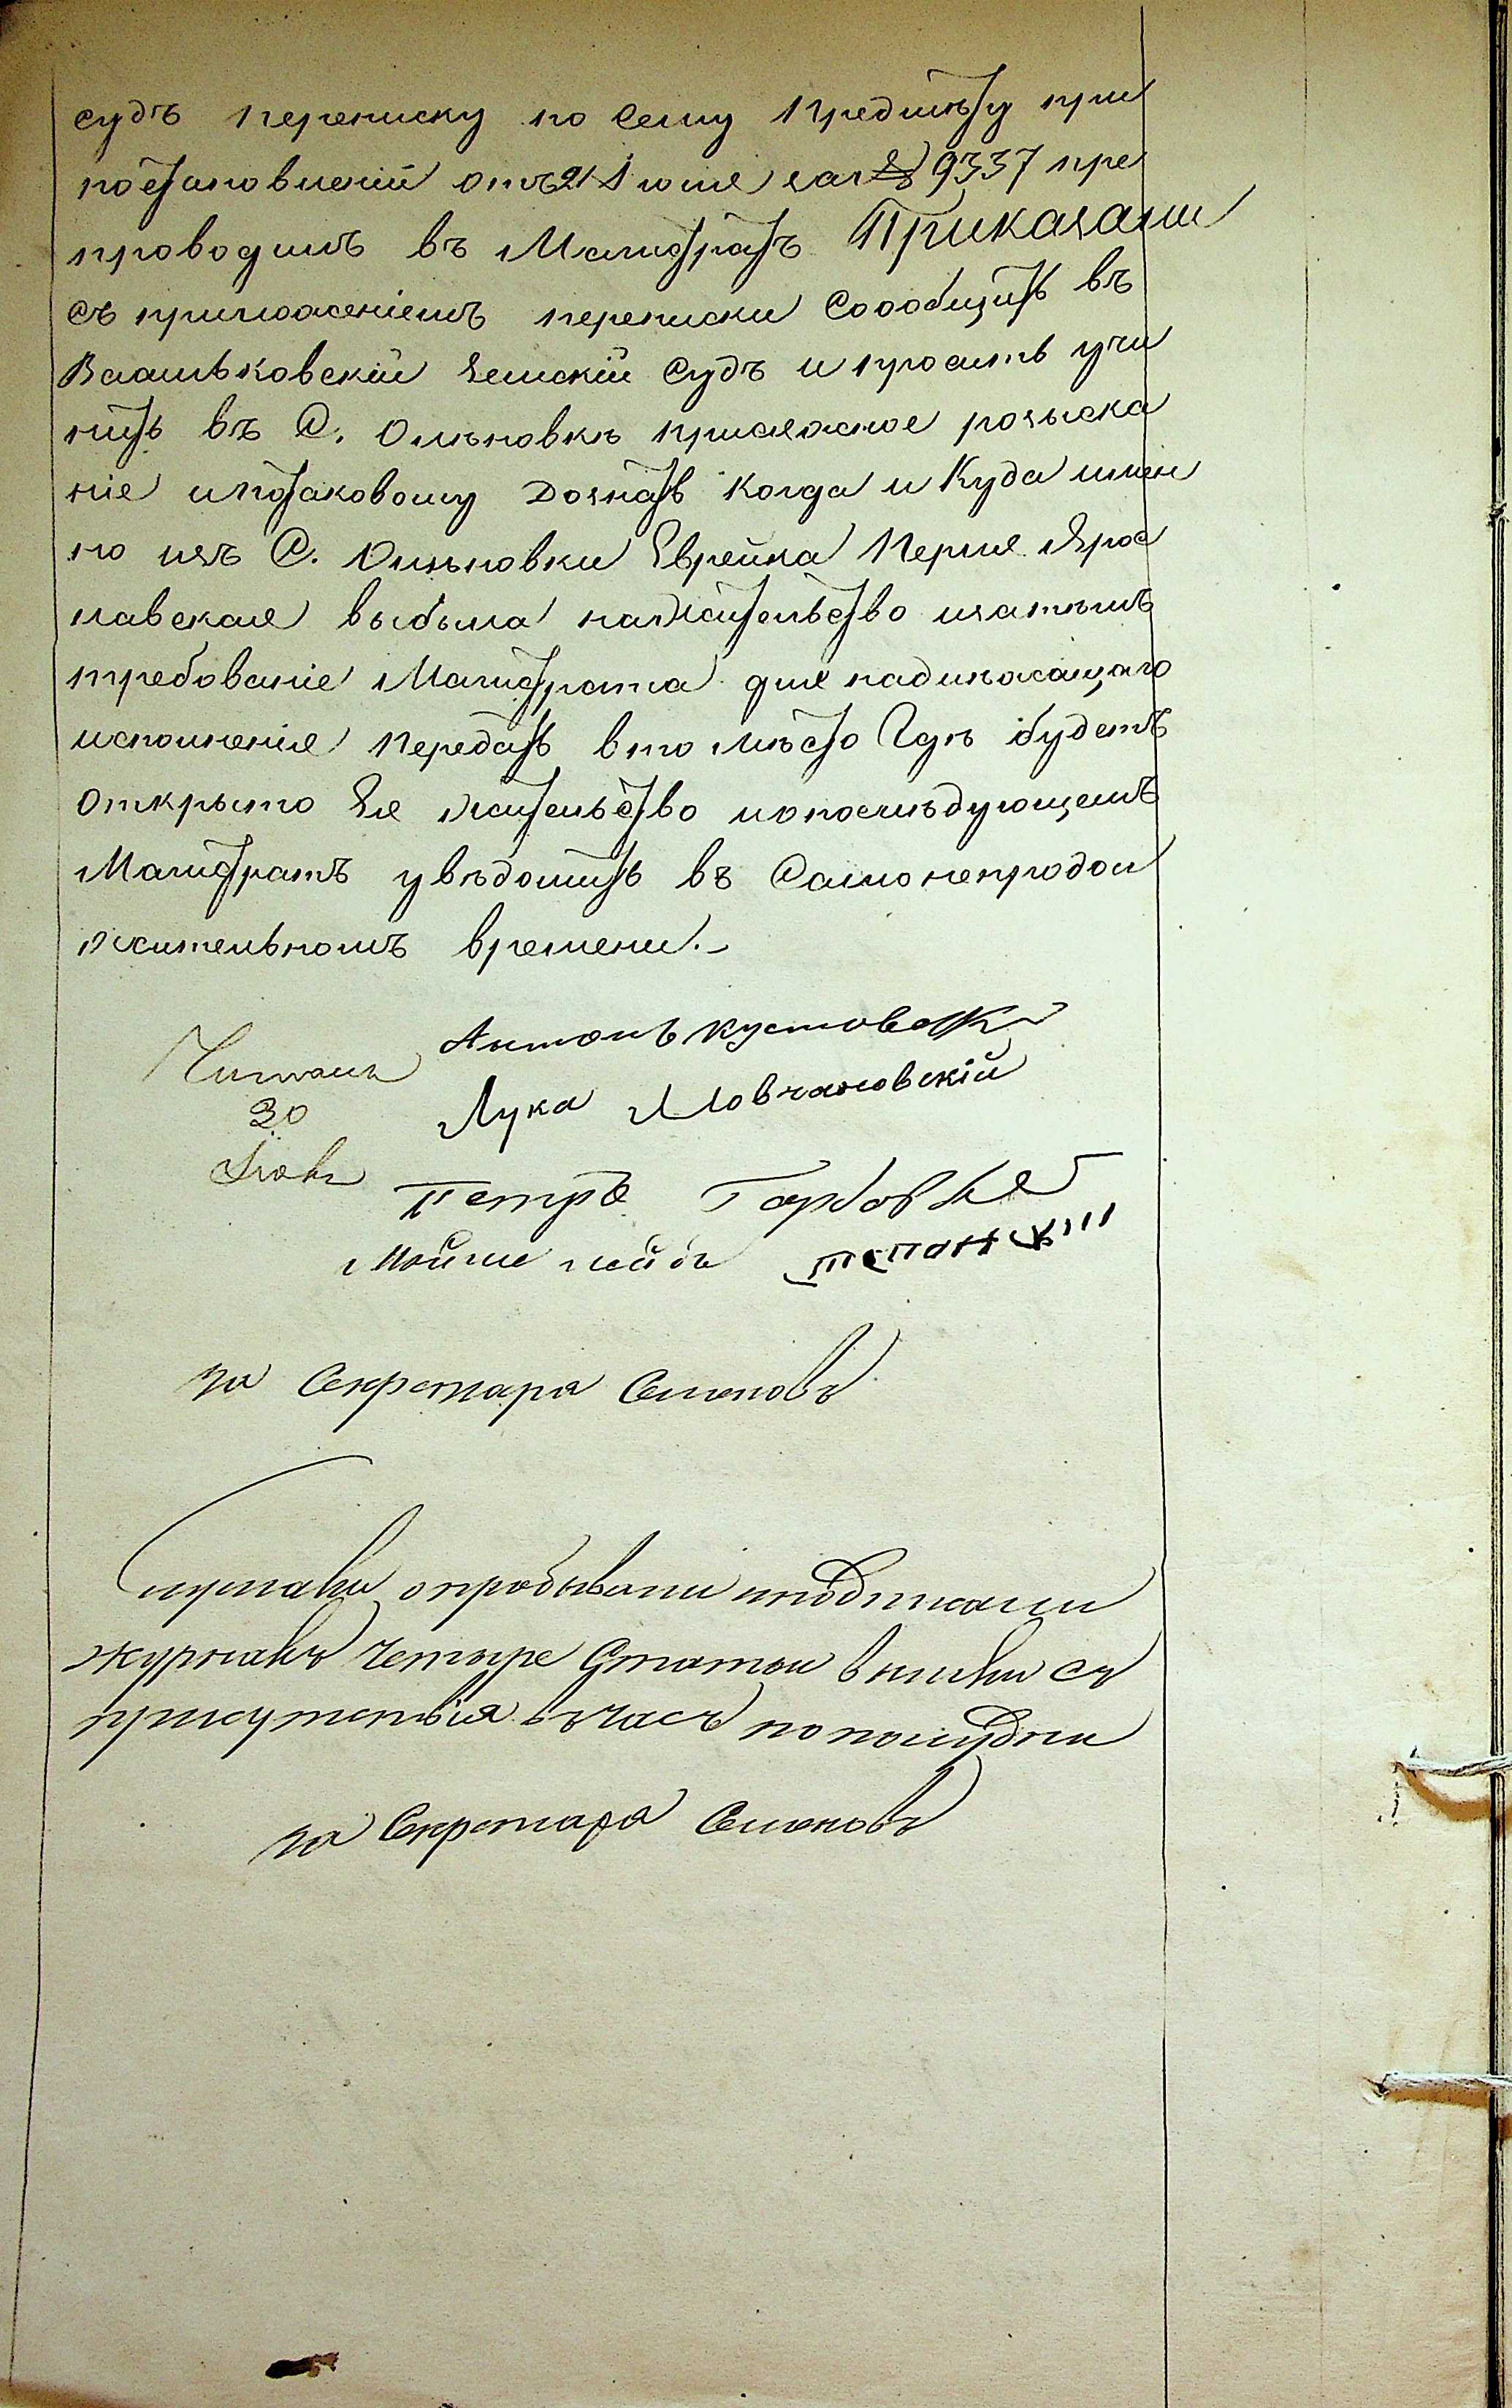 судъ переписку по сему предмѣту при
постановленіи отъ 21 Іюня за № 9337 пре
проводилъ въ Магистратъ Приказали
съ приложеніемъ переписки Соообщить въ
Васильковскій Земскій Судъ и просить учи
нить въ С. Ольновкѣ присяжное розыска
ніе ипотаковому дознать когда и Куда имен
но изъ С. Ольновки Еврейка Перля Ярос
лавская выбыла нажительство изатѣмъ
требованіе Магистрата для надлѣжащаго
исполненія передать вто мѣсто Гдѣ будетъ
открыто Ея жительство ипопослѣдующемъ
Магистратъ увѣдомить въ Самонепродол
жительномъ времени.
Читалъ Антонъ
30 Лука Мовчановскій
Петръ
Мойше лейбъ
за Секретаря Семеновъ
Слушали опробывали иподписали
журналъ четыре Статьи вышли съ
присутствія въ часъ пополудни
за Секретаря Семеновъ